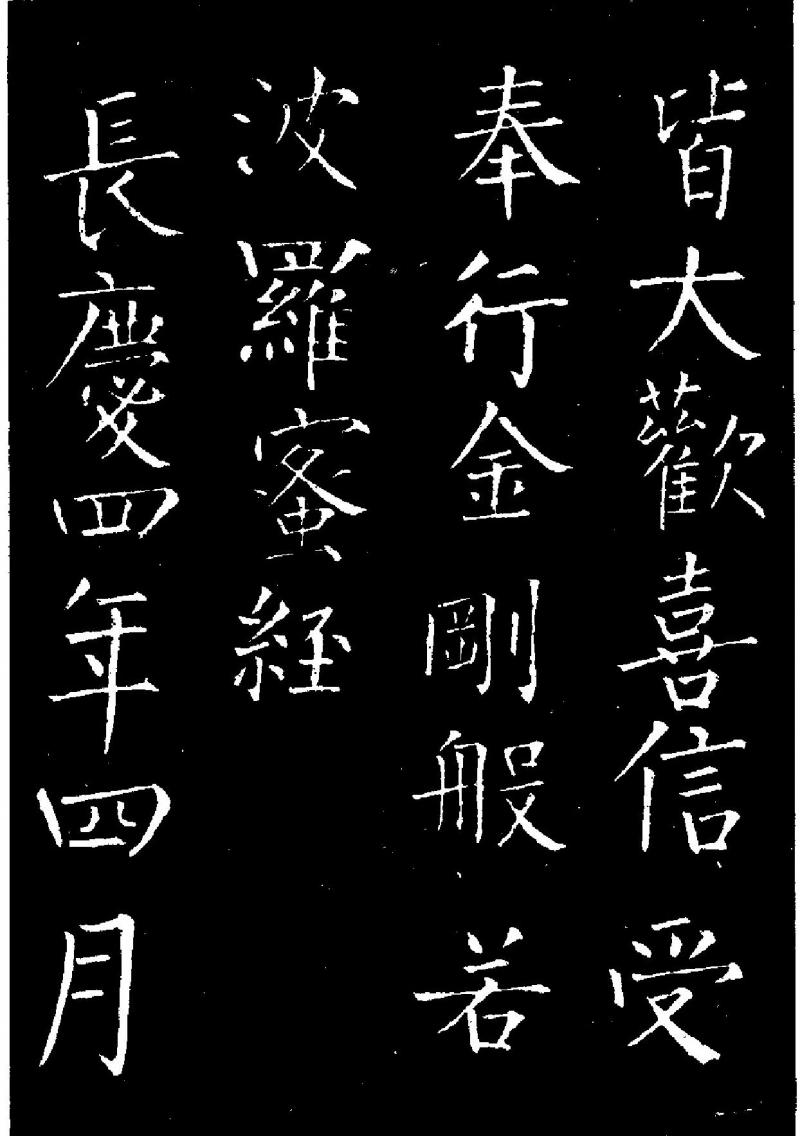 皆大歡喜信受
奉行金剛般若
波羅蜜經
長慶四年四月